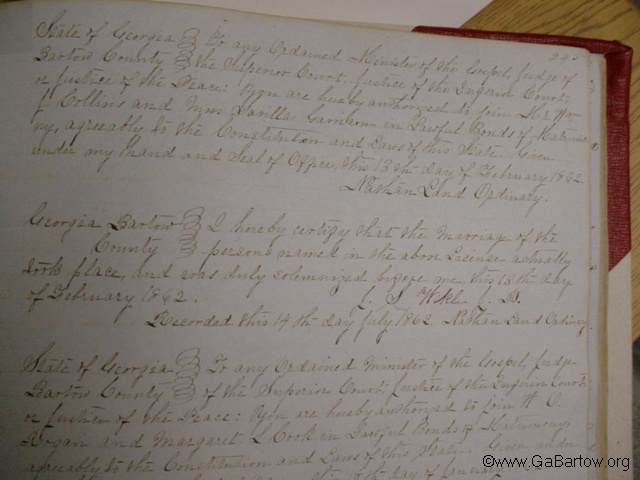 State of Georgia To any Ordained Minister of the Gospel, Judge of
Bartow County the Superior Court, Justice of the Inferior Court,
or Justice of the Peace: You are hereby authorized to join
Collins and Savilla Garrison in Lawful Bonds of Matrimo
ny, agreeably to the Constitution and Laws of this State. Given
under my hand and Seal of Office, this 13th day of February 1862.
Nathan Land Ordinary.
Georgia Bartow I hereby certify that the Marriage of the
County persons named in the above License actually
took place, and was duly solemnized before me, this 13th day
of February 1862. J.
Recorded this 14th day July 1862. Nathan Land Ordinary.
State of Georgia To any Ordained Minister of the Gospel, Judge
Bartow County of the Superior Court, Justice of the Inferior Court,
or Justice of the Peace: You are hereby authorized to join
Hogan and Margaret L Cook in Lawful Bonds of Matrimony,
agreeably to the Constitution and Laws of this State. Given under
day of
©www.GaBartow.org